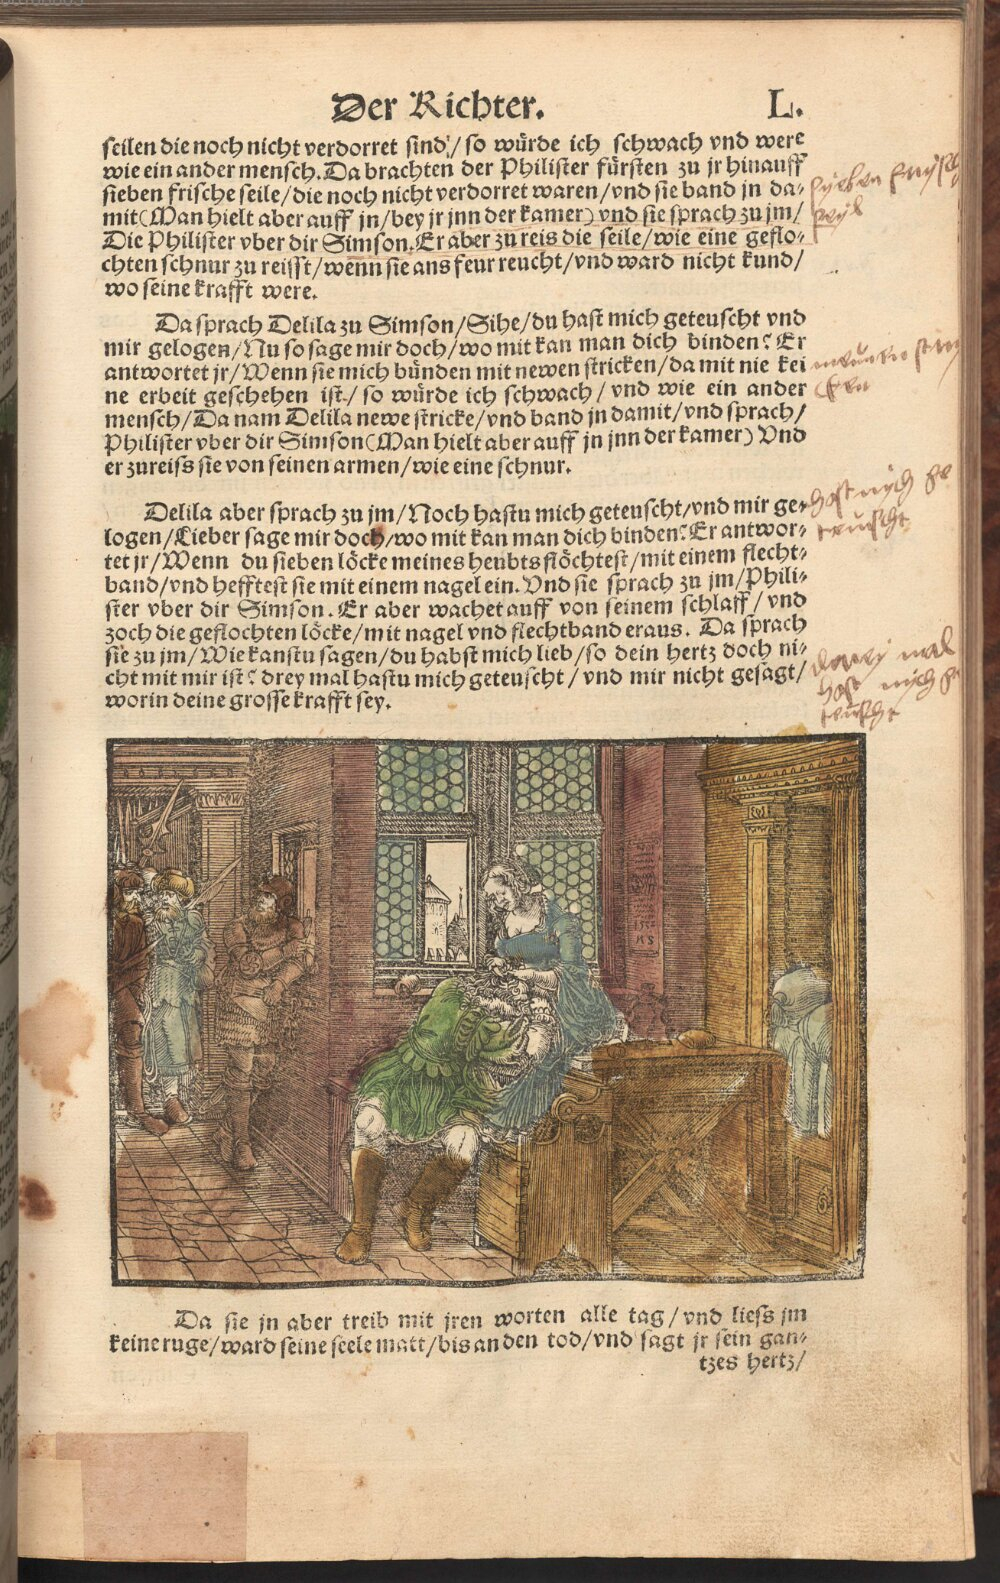 Der Richter. L.
seilen die noch nicht verdorret sind / so würde ich schwach vnd were
wie ein ander mensch. Da brachten der Philister fürsten zu jr hinauff
sieben frische seile / die noch nicht verdorret waren / vnd sie band jn da-
mit (Man hielt aber auff jn / bey jr jnn der kamer) vnd sie sprach zu jm /
Die Philister vber dir Simson. Er aber zu reis die seile / wie eine geflo-
chten schnur zu reisst / wenn sie ans feur reucht / vnd ward nicht kund /
wo seine krafft were.
Da sprach Delila zu Simson / Sihe / du hast mich geteuscht vnd
mir gelogen / Nu so sage mir doch / wo mit kan man dich binden? Er
antwortet jr / Wenn sie mich bünden mit newen stricken / da mit nie kei
ne erbeit geschehen ist / so würde ich schwach / vnd wie ein ander
mensch / Da nam Delila newe stricke / vnd band jn damit / vnd sprach /
Philister vber dir Simson (Man hielt aber auff jn jnn der kamer) Vnd
er zureiss sie von seinen armen / wie eine schnur.
Delila aber sprach zu jm / Noch hastu mich geteuscht / vnd mir ge-
logen / Lieber sage mir doch / wo mit kan man dich binden? Er antwor-
tet jr / Wenn du sieben löcke meines heubts flöchtest / mit einem flecht-
band / vnd hefftest sie mit einem nagel ein. Vnd sie sprach zu jm / Phili-
ster vber dir Simson. Er aber wachet auff von seinem schlaff / vnd
zoch die geflochten löcke / mit nagel vnd flechtband eraus. Da sprach
sie zu jm / Wie kanstu sagen / du habst mich lieb / so dein hertz doch ni-
cht mit mir ist? drey mal hastu mich geteuscht / vnd mir nicht gesagt /
worin deine grosse krafft sey.
hast mych ge
teuscht
mal
hast mych ge
teuscht
HS
Da sie jn aber treib mit jren worten alle tag / vnd liess jm
keine ruge / ward seine seele matt / bis an den tod / vnd sagt jr sein gan-
tzes hertz /